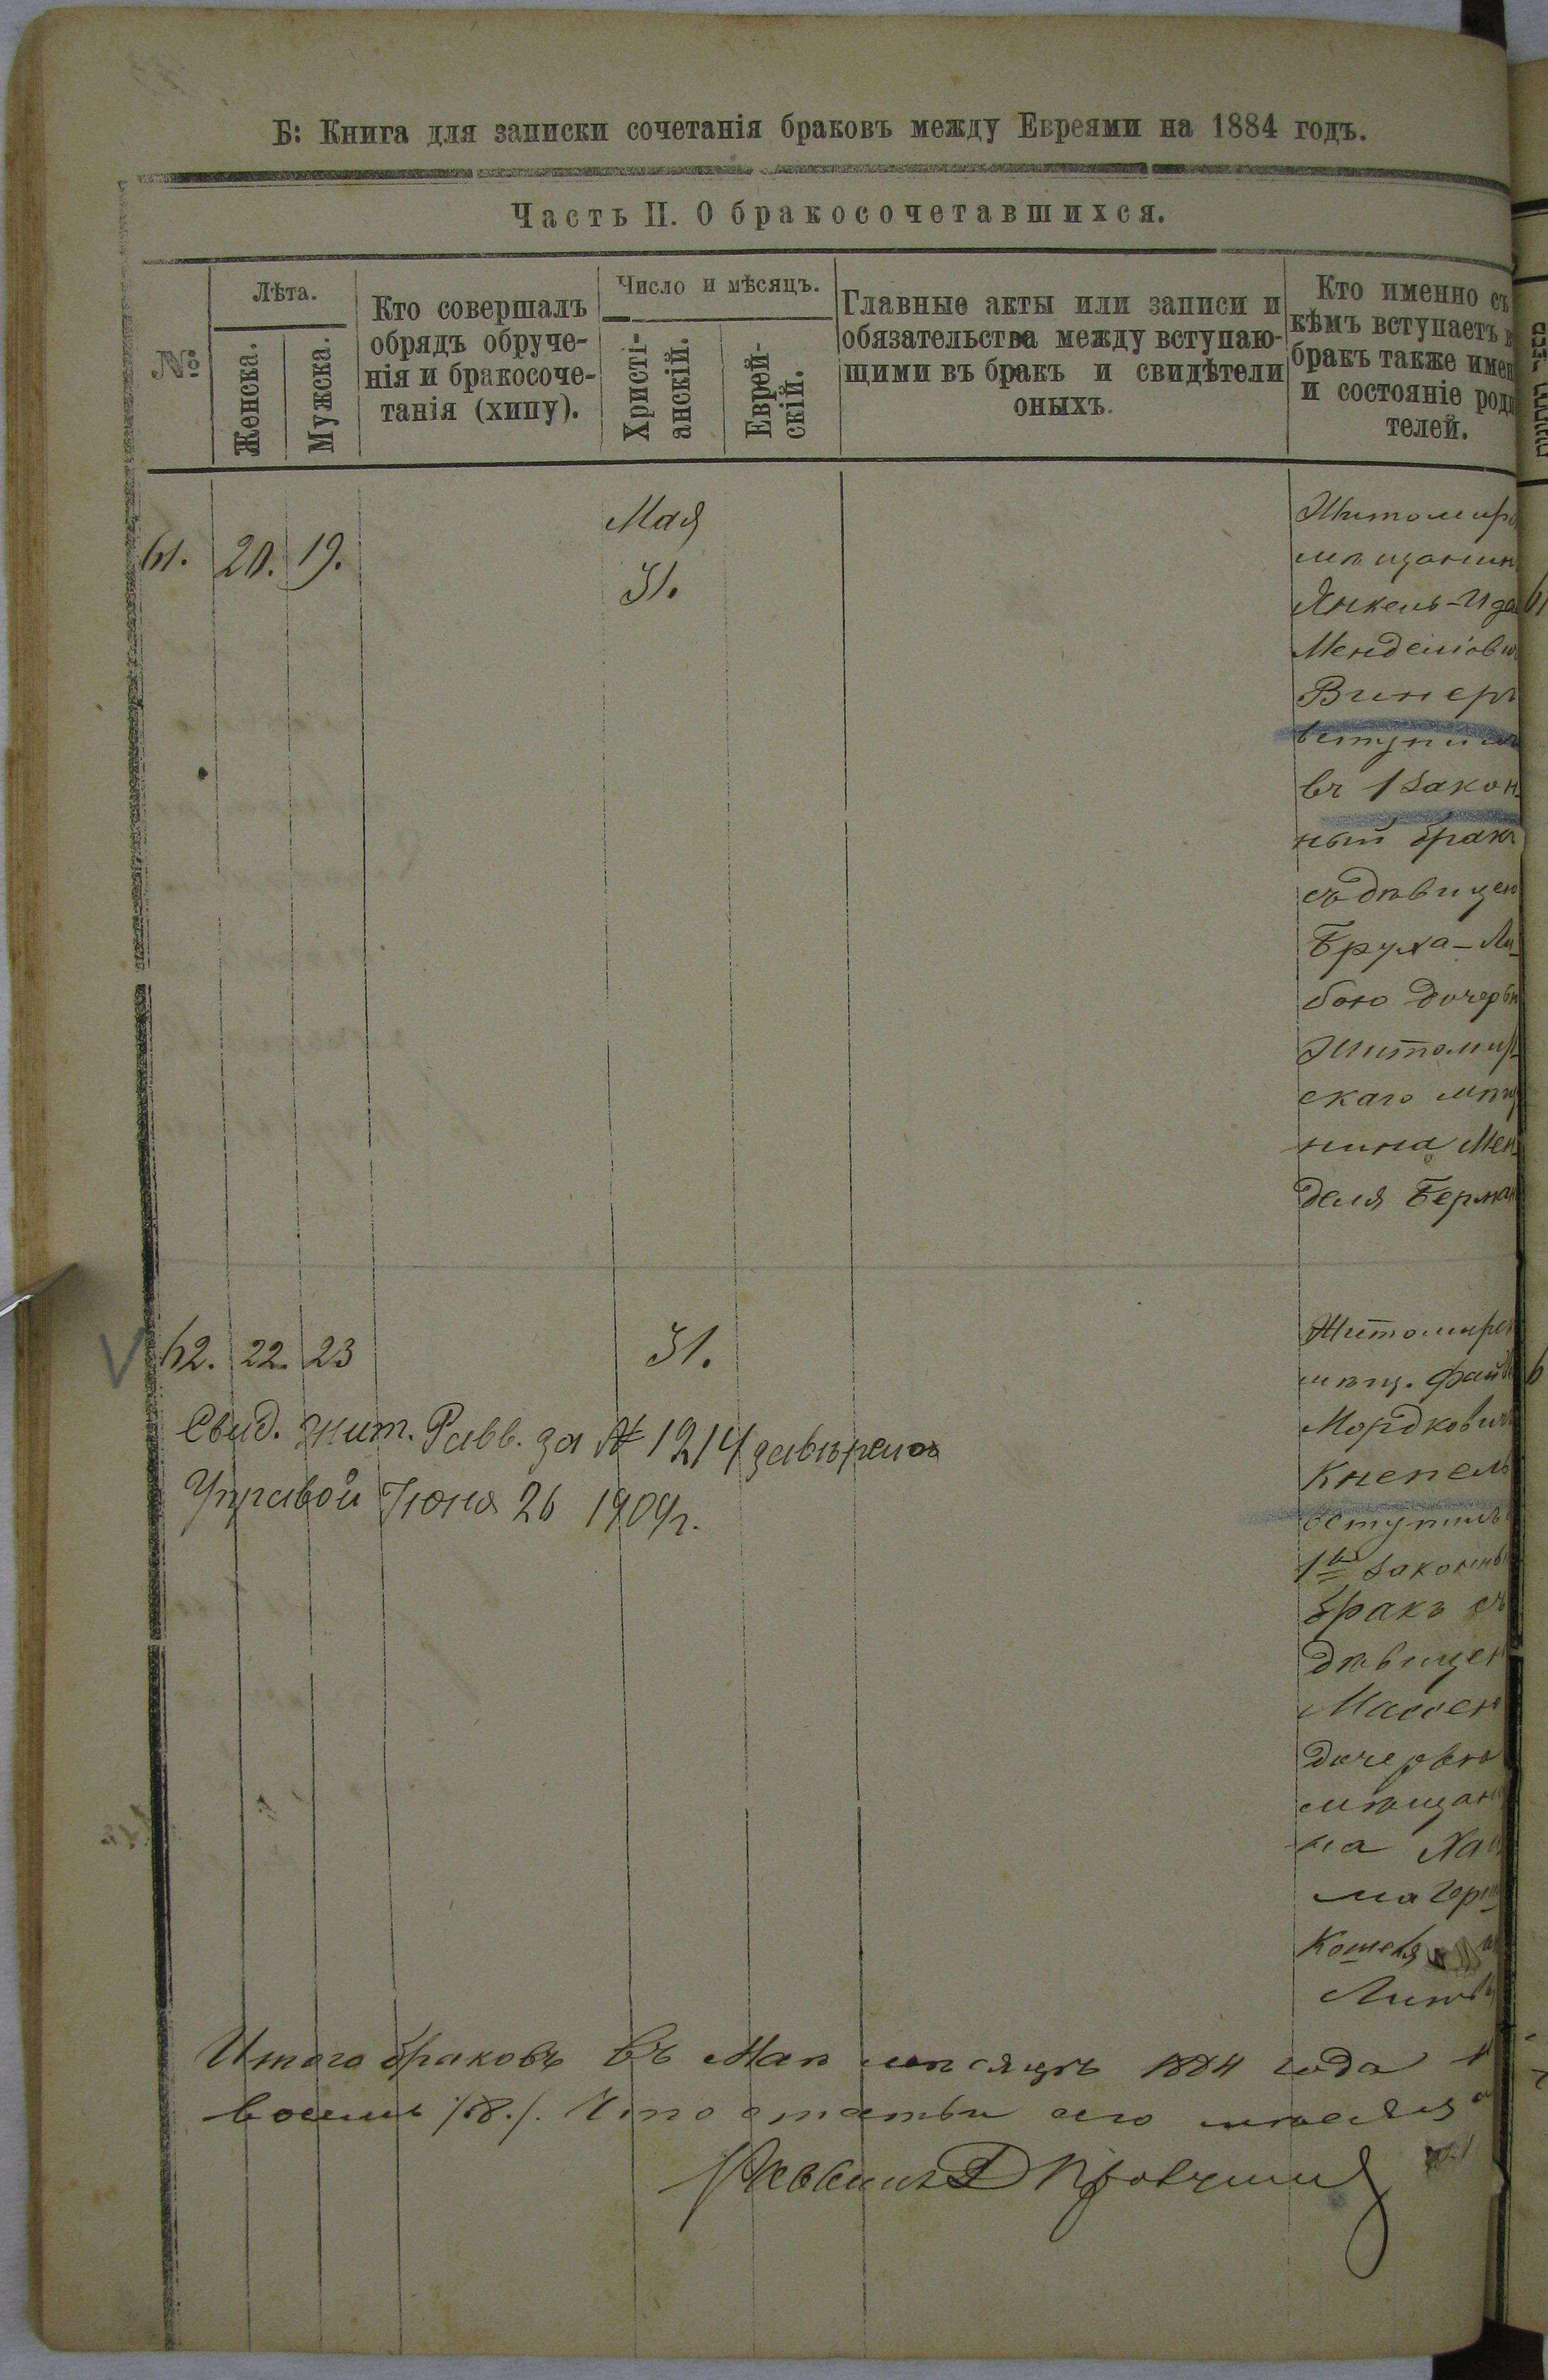 Б: Книга для записки сочетанія браковъ между Евреями на 1884 годъ.
Часть II. О бракосочетавшихся.
№
Лѣта.
Женска.
Мужска.
Кто совершалъ
обрядъ обруче-
нія и бракосоче-
танія (хипу).
Число и мѣсяцъ.
Христі-
анскій.
Еврей-
скій.
Главные акты или записи и
обязательства между вступаю-
щими въ бракъ и свидѣтели
оныхъ.
Кто именно съ
кѣмъ вступаетъ в
бракъ также имен
и состояніе роди
телей.
61. 20. 19.
Мая
31.
Житомирс
мѣщанин
Янкель-Ида
Менделіови
Винеръ
вступилъ
въ 1 закон-
ный бракъ
съ дѣвицею
Бруха-Ли-
бою дочерью
Житомир-
скаго мѣщ
нина Мен-
деля Берман
62. 22. 23
31.
Житомирск
мѣщ. Файв
Мордковичъ
Кнепель
вступилъ
1й законны
бракъ съ
дѣвицею
Массею
дочерью
мѣщани
на Хаи
ма Герш
Кошеля
Свид. Жит. Равв. за № 1214 завѣрено
Управой Іюня 26 1909г.
Итого браковъ въ Маѣ мѣсяцѣ 1884 года
восемь /8./. Что статьи сего мѣсяца
Раввинъ